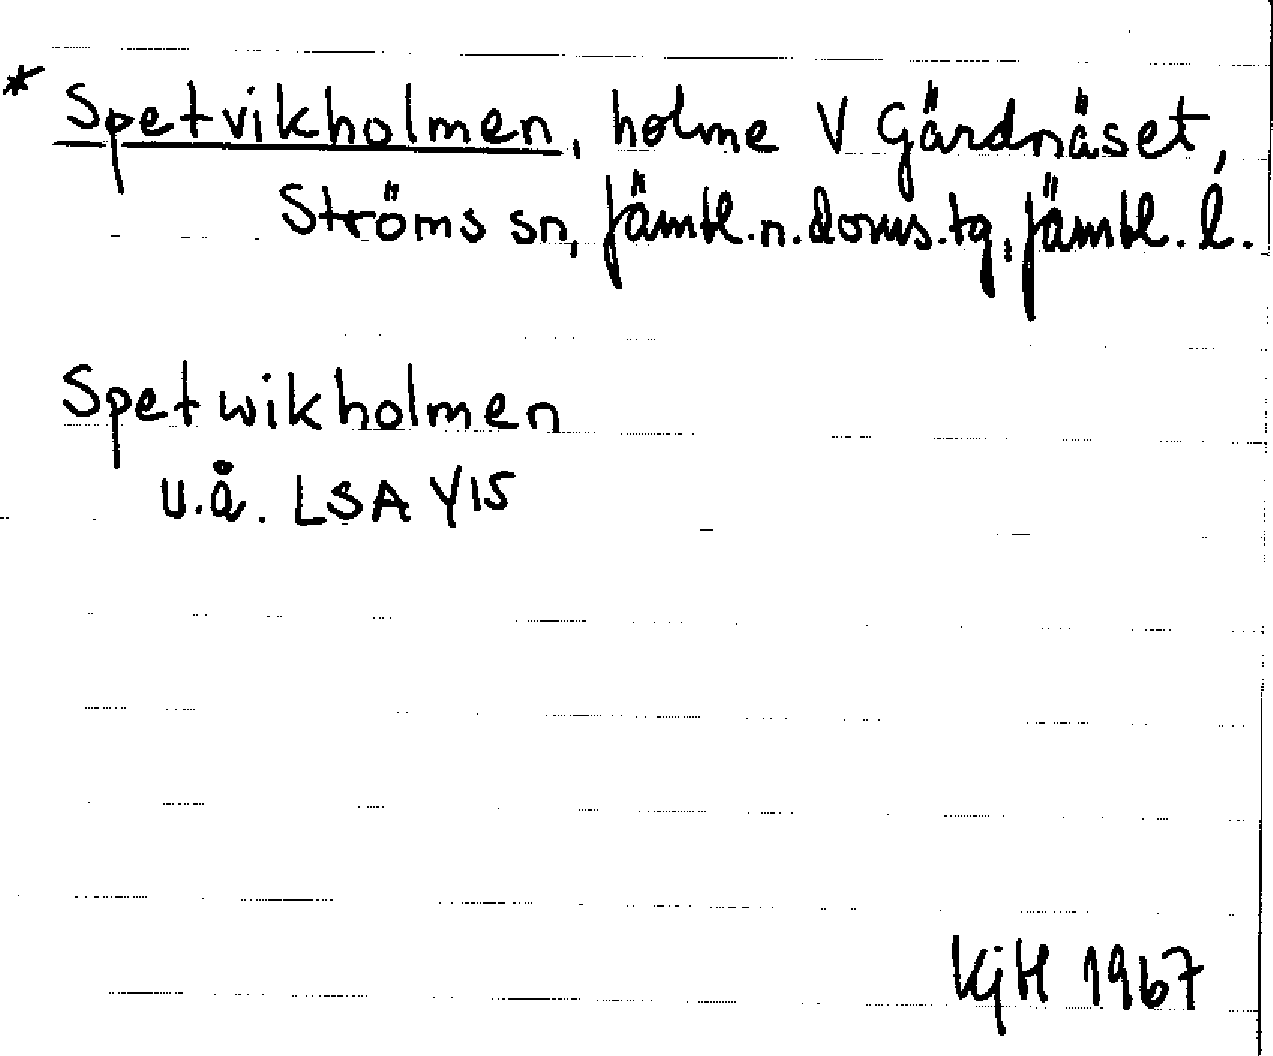 * Spetvikholmen, holme V Gärdnäset,
Ströms sn, Jämtl. n. doms. tg, Jämtl. l.
Spetwikholmen
u.å. LSA Y15
KjH 1967